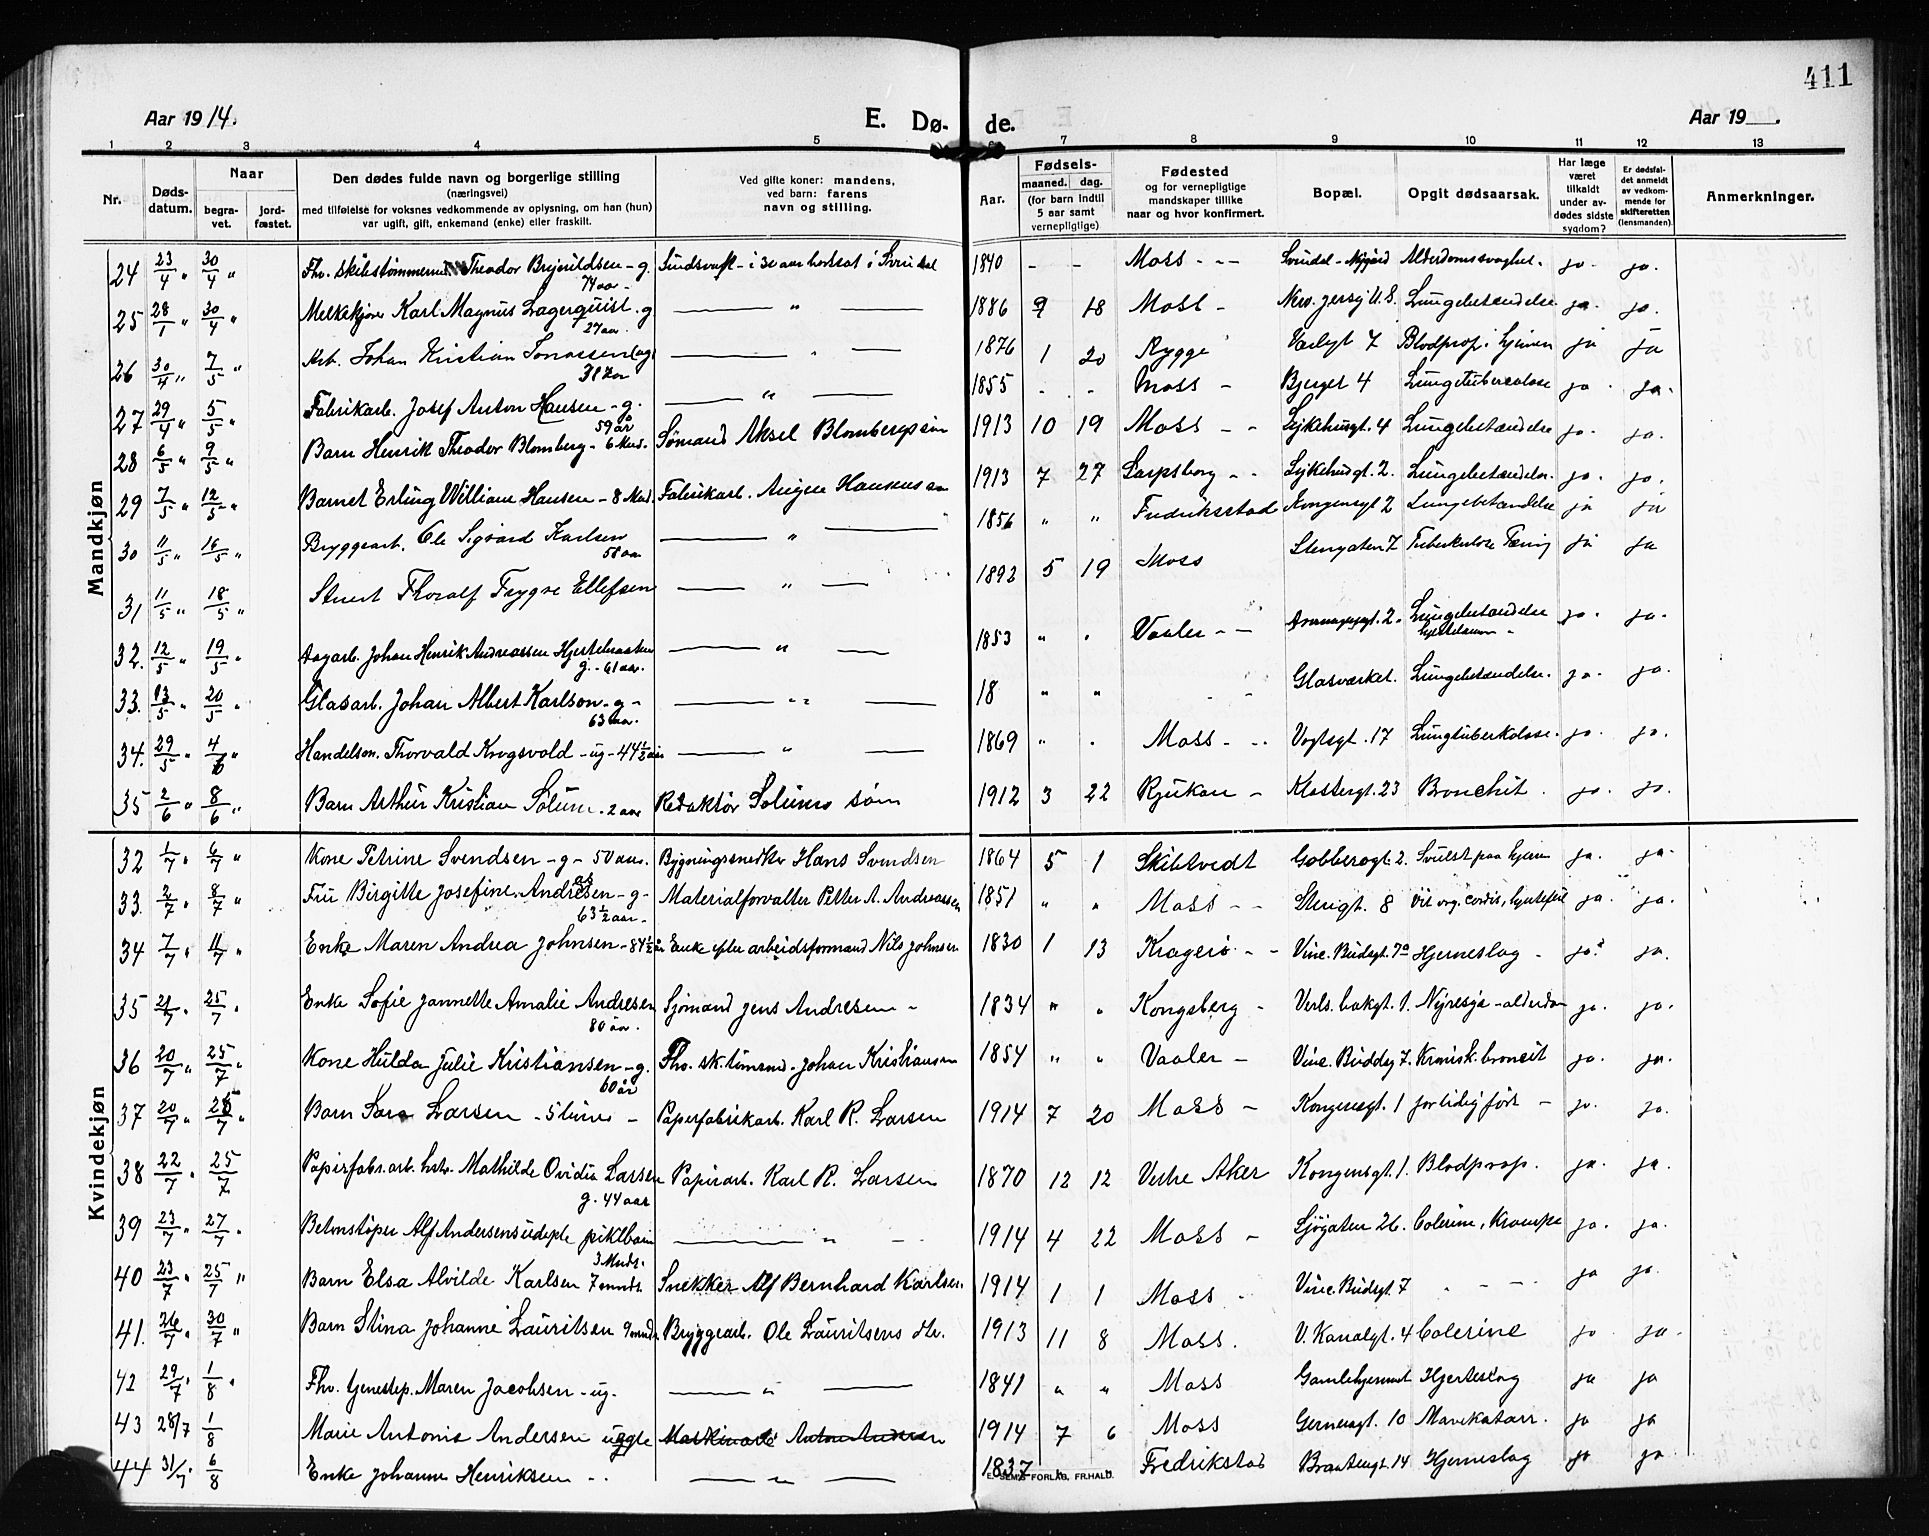 411
Aar 1914.
E. Dø- de.
Aar 19
1 2 3 4 5 7 8 9 10 11 12 13
Nr.
Døds-
datum.
Naar
begra-
vet.
jord-
fæstet.
Den dødes fulde navn og borgerlige stilling
(næringsvei)
med tilføielse for voksnes vedkommende av oplysning, om han (hun)
var ugift, gift, enkemand (enke) eller fraskilt.
Ved gifte koner: mandens,
ved barn: farens
navn og stilling.
Aar.
Fødsels-
maaned. dag.
(for barn indtil
5 aar samt
vernepligtige)
Fødested
og for vernepligtige
mandskaper tillike
naar og hvor konfirmert.
Bopæl.
Opgit dødsaarsak.
Har læge
været
tilkaldt
under av-
dødes sidste
sygdom?
Er dødsfal-
det anmeldt
av vedkom-
mende for
skifteretten
(lensmanden).
Anmerkninger.
Mandkjøn
24 23/4 " 30/4 " Fhv. Theodor - g. 74 aar - 1840 - - Moss - - Alderdomssvaghet. ja. ja.
25 28/1 " 30/4 " Melkekjører Karl Magnus Lagerquist - g 27 aar. — " — 1886 9 18 Moss - Lungebetændelse ja. ja.
26 30/4 " 7/5 " Arb. Johan Kristian — " — 1876 1 20 Rygge Varlgt 7 Blodprop i hjernen ja ja
27 29/4 " 5/5 " Fabrikarb. Josef Anton Hansen - g. 59 år — " — 1855 - - Moss - Bjerget 4 Lungetuberculose ja. ja.
28 6/5 " 9/5 " Barn Henrik Theodor Blomberg - 6 Mnd. Sømand Aksel Blombergs søn 1913 10 19 Moss - - Sykehusgt. 4 Lungebetændelse ja. ja.
29 7/5 " 12/5 " Barnet Erling William Hansen - 8 Mnd. Fabrikarb. Hansens 1913 7 27 Sarpsborg - - Sykehusgt. 2. Lungebetændelse. ja. ja.
30 11/5 " 16/5 " Bryggearb. Ole Sigvard Karlsen 58 aar — " — 1856 " " Fredriksstad Kongensgt 2 Lungebetændelse ja ja
31 11/5 " 18/5 " Thoralf Trygve Ellefsen — " — 1892 5 19 Moss Stengaten 7 Tuberkulose Tæring ja ja
32. 12/5 " 19/5 " Dagarb. Johan Henrik Andreassen g. - 61 aar. — " — 1853 " " Vaaler - - Lungebetændelse ja. ja.
33. 13/5 " 20/5 " Glasarb. Johan Albert Karlson - g - 63 aar. — " — 18 " " - - Glasværket. Lungebetændelse. ja. ja.
34. 29/5 " 4/6 " Handelsm. Thorvald Krogsvold - ug - 44½ aar — " — 1869 " " Moss - - Vogtsgt. 17 Lungtuberkolose. ja. ja.
35 2/6 " 8/6 " Barn Arthur Kristian Solum - 2 aar Redaktør Solums søn 1912 3 22 Rjukan - Klostergt. 23 Bronchit. ja. ja.
Kvindekjøn
32 1/7 " 6/7 " Kone Petrine Svendsen - g - 50 aar. Bygningssnedker Hans Svendsen 1864 5 1 Skibtvedt 2. Svulst paa hjern ja. ja.
33. 2/7 " 8/7 " Fru Birgitte Josefine Andreasen - g - 63½ aar - Materialforvalter Petter A. Andreassen 1851 " " Moss - - Stengt. 8 Vit. org. cordis, hjertefeil ja. ja.
34 7/7 " 11/7 " Enke Maren Andrea Johnsen - 84½ år Enke efter arbeidsformand Nils Johnsen 1830 1 13 Kragerø - - Vinc. Budsgt. 7a Hjerneslag - ja. ja.
35 21/7 " 25/7 " Enke Sofie Jannette Amalie Andresen 80 aar. Sjømand Jens Andresen - 1834 " " Kongsberg - Verls. bakgt. 1. Nyresyk - alderdom ja. ja.
36 20/7 " 25/7 " Kone Hulda Julie Kristiansen - g. 60 år Fhv. sk. tømmd. Johan Kristiansen 1854 " " Vaaler - Vinc. Buddsg 7. Kronisk. broncit ja. ja.
37 20/7 " 25/7 " Barn Sara Larsen - 5 timer - Paperfabrikarb. Karl R. Larsen 1914 7 20 Moss - Kongensgt. 1 for tidlig født - ja. ja.
38 22/7 " 25/7 Papirfabr. arb. hstr. Mathilde Ovidia Larsen g. 44 aar Papirarb. Karl R. Larsen 1870 12 12 Vestre Aker Kongensgt. 1. Blodprop. ja. ja.
39 23/7 " 27/7 " Betonstøper Alf Andersens udøpte pikebarn 3 Mnds. — " — 1914 4 22 Moss - Sjøgaten 26. Colerine, Krampe ja. ja.
40 23/7 " 25/7 " Barn Elsa Alvilde Karlsen 7 mnds. Snekker Alf Bernhard Karlsen 1914 1 1 Moss - Vinc. Budsgt. 7 - - - ja ja.
41. 26/7 " 30/7 " Barn Stina Johanne Lauritsen 9 mndr. Bryggearb. Ole Lauritsens dtr. 1913 11 8 Moss. V. Kanalgt. 4 Colerine ja ja.
42 29/7 " 1/8 " Fhv. tjenestep. Maren Jacobsen - ug. — " — 1841 " " Moss Gamlehjemmet Hjerteslag ja ja
43 28/7 1/8 Marie Antonie Andersen uegte Maskinarb. Anton Andersen 1914 7 6 Moss Gernersgt. 10 Mavekatarr. ja ja
44 31/7 " 6/8 Enke Johanne Henriksen - - — " — 1837 " " Fredrikstad 14 Hjerneslag ja ja
E. SEMS FORLAG, FR.HALD.